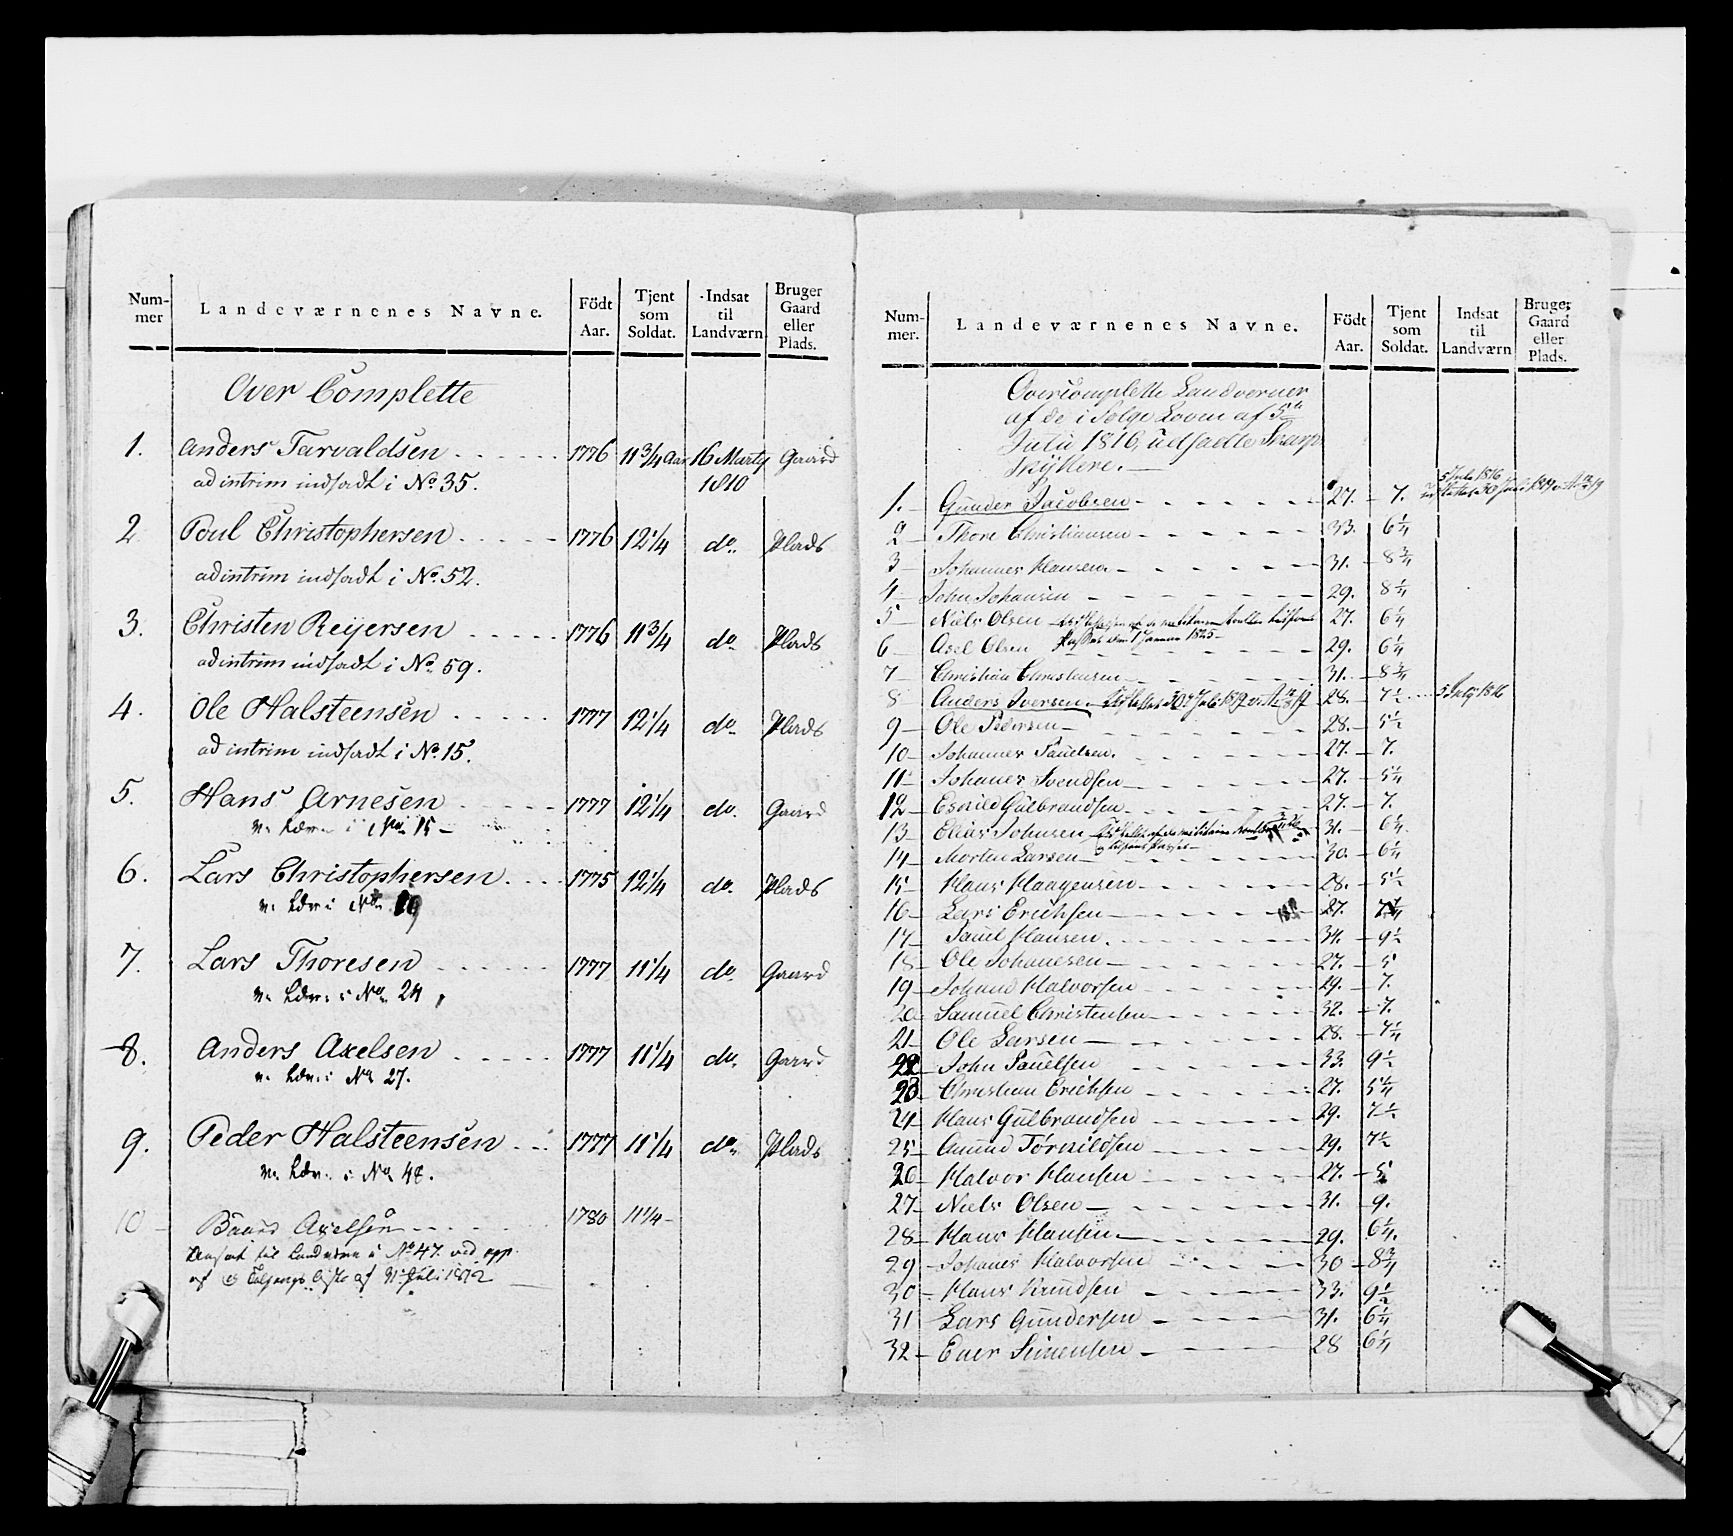 Num-
mer
Landeværnenes Navne.
Födt
Aar.
Tjent
som
Soldat.
Indsat
til
Landværn
Bruger
Gaard
eller
Plads.
Over Complette
1. Anders Tarvaldsen 1776 11 3/4 Aar 16 Martÿ Gaard
ad intrim indsadt i No 35. 1810
2 Poul Christophersen 1776 12 1/4 do Plads
ad intrim indsadt i No 52.
3. Christen Reÿersen 1776 11 3/4 do Plads
ad intrim indsadt i No 59.
4. Ole Halsteensen 1777 12 1/4 do Plads
ad intrim indsadt i No 15.
5. Hans Arnesen 1777 12 1/4 do. Gaard
No 15
6. Lars Christophersen 1775 12 1/4 do. Plads
No 19
7. Lars Thoresen 1777 11 1/4 do Gaard
No 24
8. Anders Axelsen 1777 11 1/4 do Gaard
No 27.
9. Peder Halsteensen 1777 11 1/4 do Plads
i No 48.
10 Baard Axelsen 1780 11 1/4
til Landværn i No 47. ved opp
af Juli 1812
Num-
mer.
Landeværnenes Navne.
Födt
Aar.
Tjent
som
Soldat.
Indsat
til
Landværn
Bruger
Gaard
eller
Plads.
Overcomplette Landverner
af de i Følge Loven af 5te
Julii 1816, udsadte Skarp
skÿttere.
5 Julii 1816
1. Gunder Jacobsen 27. 7.
2 Thore Christiansen 33. 6 1/4
3 Johannes Hansen 31. 8 3/4
4 John Johansen 29. 8 1/4
5 Niels Olsen 27. 6 1/4
Januar 1825
6 Axel Olsen 29. 6 1/4
7 Christian Christensen 31. 8 3/4
8 Anders Iversen 28. 7 1/2 5 Julÿ 1816
9 Ole Pedersen 28. 5 1/2
10 Johannes Paulsen 27. 7.
11 Johanes Svendsen 27. 5 1/4
12 Gulbrandsen 27. 7.
13 Elias Johnsen 31. 6 1/4
14 Morten Larsen 30. 6 1/4
15 Hans Haagensen 28. 5 1/2
16 Lars Erichsen 27.
17 Pauel Hansen 34. 9 1/2
18 Ole Johanesen 27. 5
19 Johan Halvorsen 29. 7.
20 Samuel Christensen 32. 7.
21 Ole Larsen 28. 7 1/4
22 John Pauelsen 33. 9 1/2
23 Christian Erichsen 27. 5 1/4
24 Hans Gulbrandsen 29. 7 1/2
25 Amund 29. 7 1/2
26 Halvor Hansen 27. 5
27 Niels Olsen 31. 9.
28 Hans Hansen 29. 6 1/4
29 Johanes Halvorsen 30 8 3/4
30 Hans Knudsen 33. 9 1/2
31 Lars Gundersen 31. 6 1/4
32 Ener Simensen 28 6 1/4